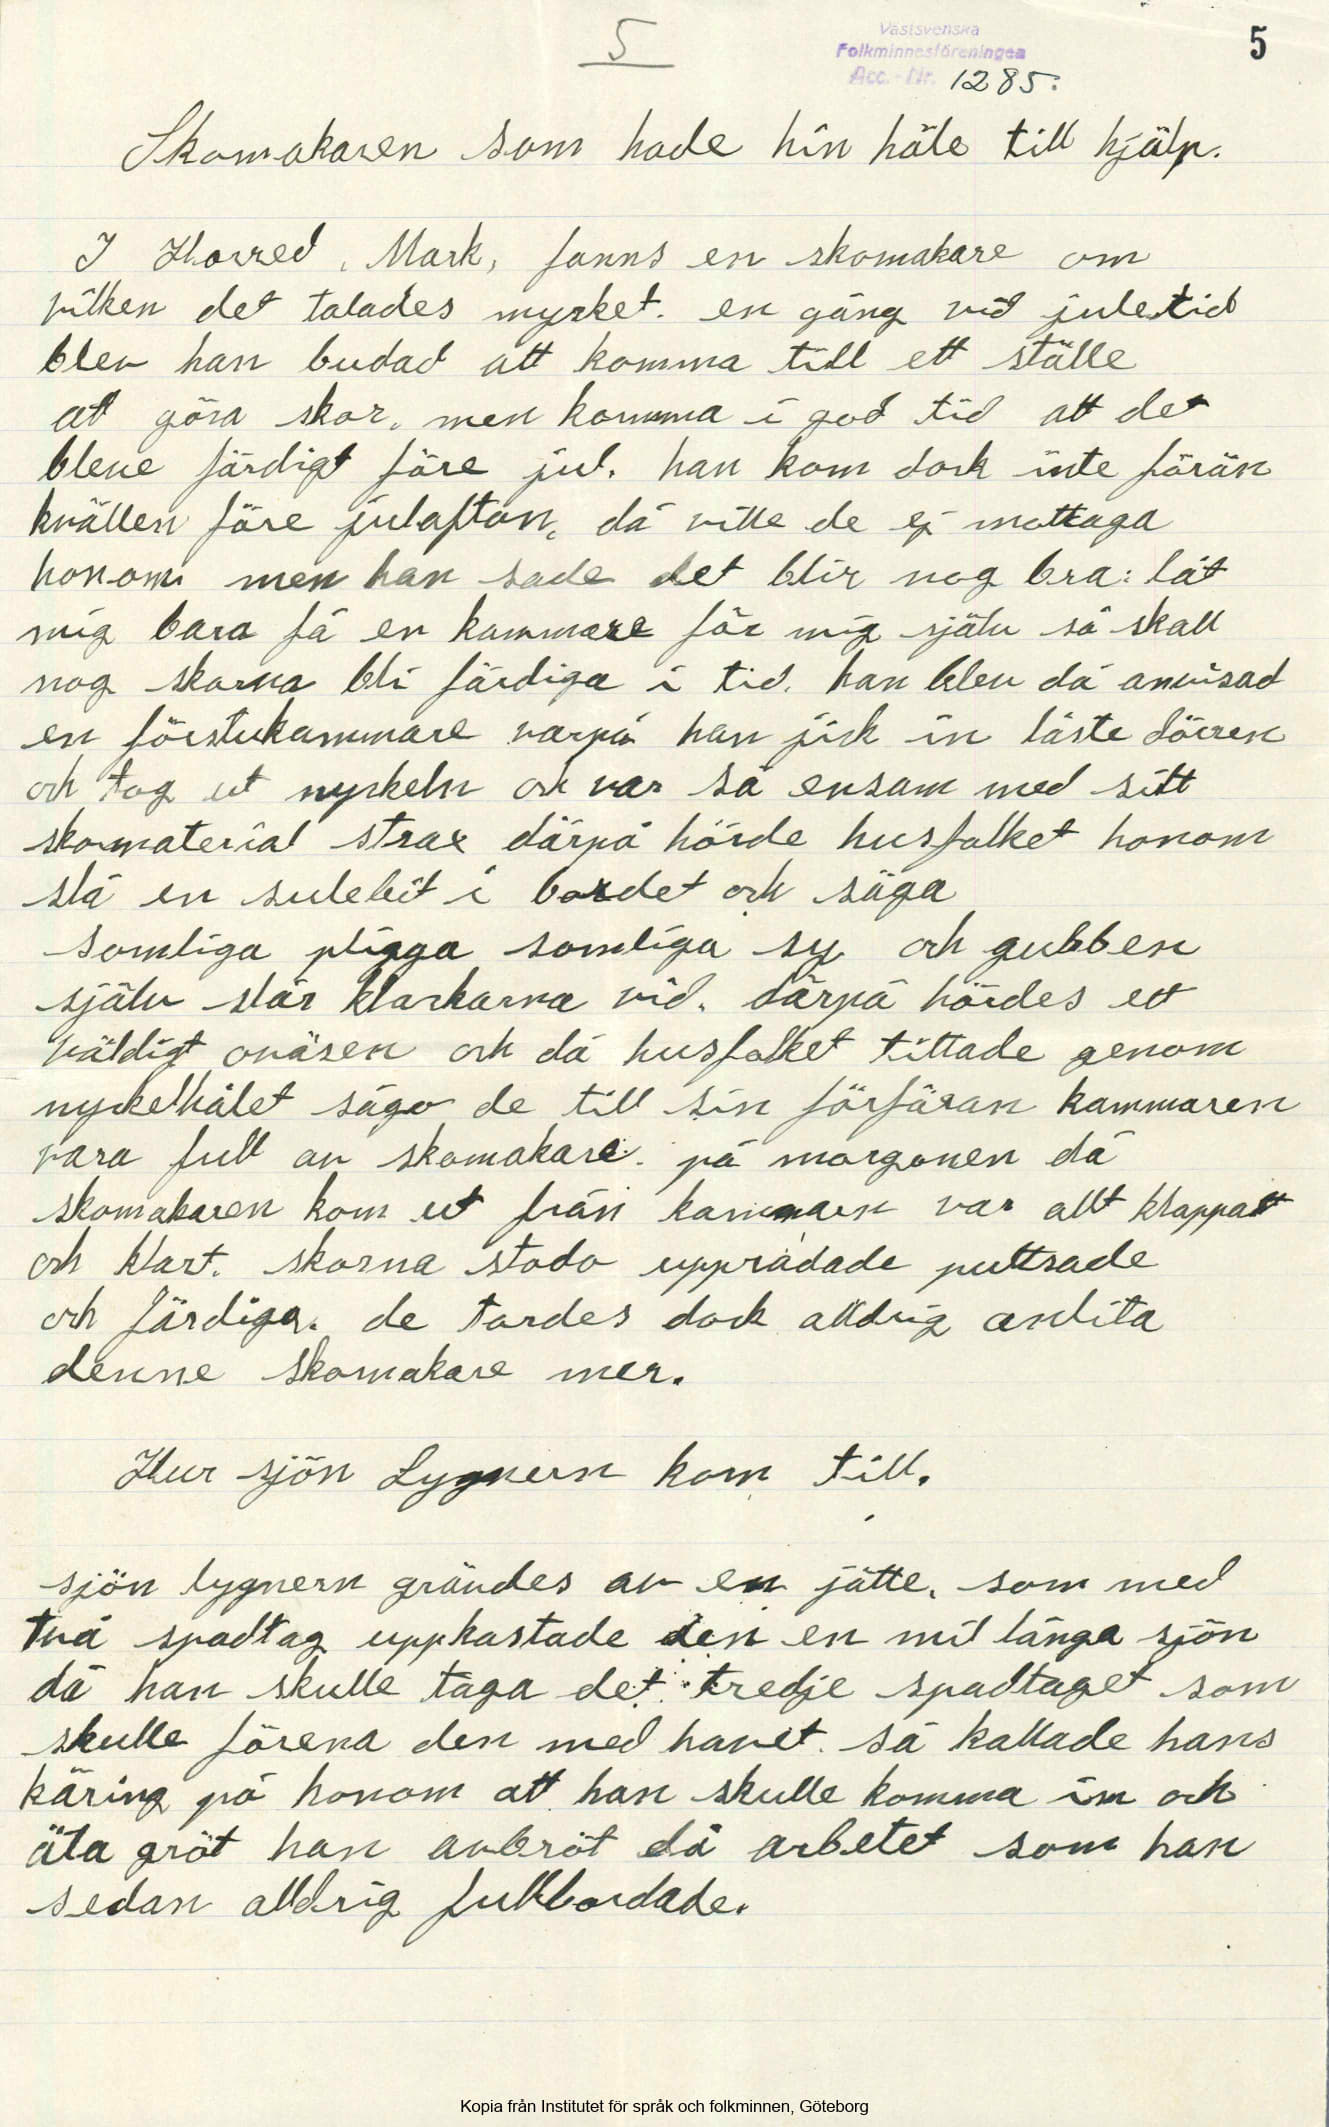 5
Västsvenska
Folkminnesföreningen
Acc.-Nr. 1285.
5
Skomakaren som hade hin håle till hjälp.
I Horred, Mark, fanns en skomakare om
vilken det talades mycket. en gång vid juletid
blev han budad att komma till ett ställe
at göra skor, men komma i god tid att det
bleve färdigt före jul. han kom dock inte förän
kvällen före julafton, då ville de ej mottaga
honom men han sade det blir nog bra: låt
mig bara få en kammare för mig själv så skall
nog skorna bli färdiga i tid. han blev då anvisad
en förstukammare varpå han jick in låste dörren
och tog ut nyckeln och var så ensam med sitt
skomaterial strax därpå hörde husfolket honom
slå en sulebit i bordet och säga
somliga pligga somliga sy och gubben
själv slår klackarna vid. därpå hördes ett
väldigt oväsen och då husfolket tittade genom
nyckelhålet sågo de till sin förfäran kammaren
vara full av skomakare. på morgonen då
skomakaren kom ut från kammarn var allt klappat
och klart. skorna stodo upprådade puttsade
och färdiga. de tordes dock alldrig anlita
denne skomakare mer.
Hur sjön Lygnern kom till.
sjön lygnern grändes av en jätte, som med
två spadtag uppkastade den en mil långa sjön
då han skulle taga det tredje spadtaget som
skulle förena den med havet. så kallade hans
käring på honom att han skulle komma in och
äta gröt han avbröt då arbetet som han
sedan alldrig fullbordade.
Kopia från Institutet för språk och folkminnen, Göteborg